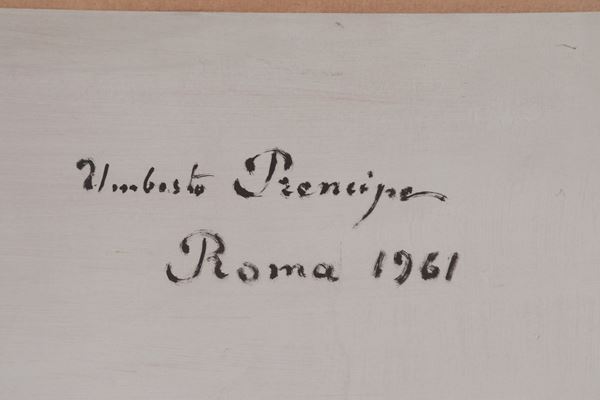 Umberto Prencipe
Roma 1961